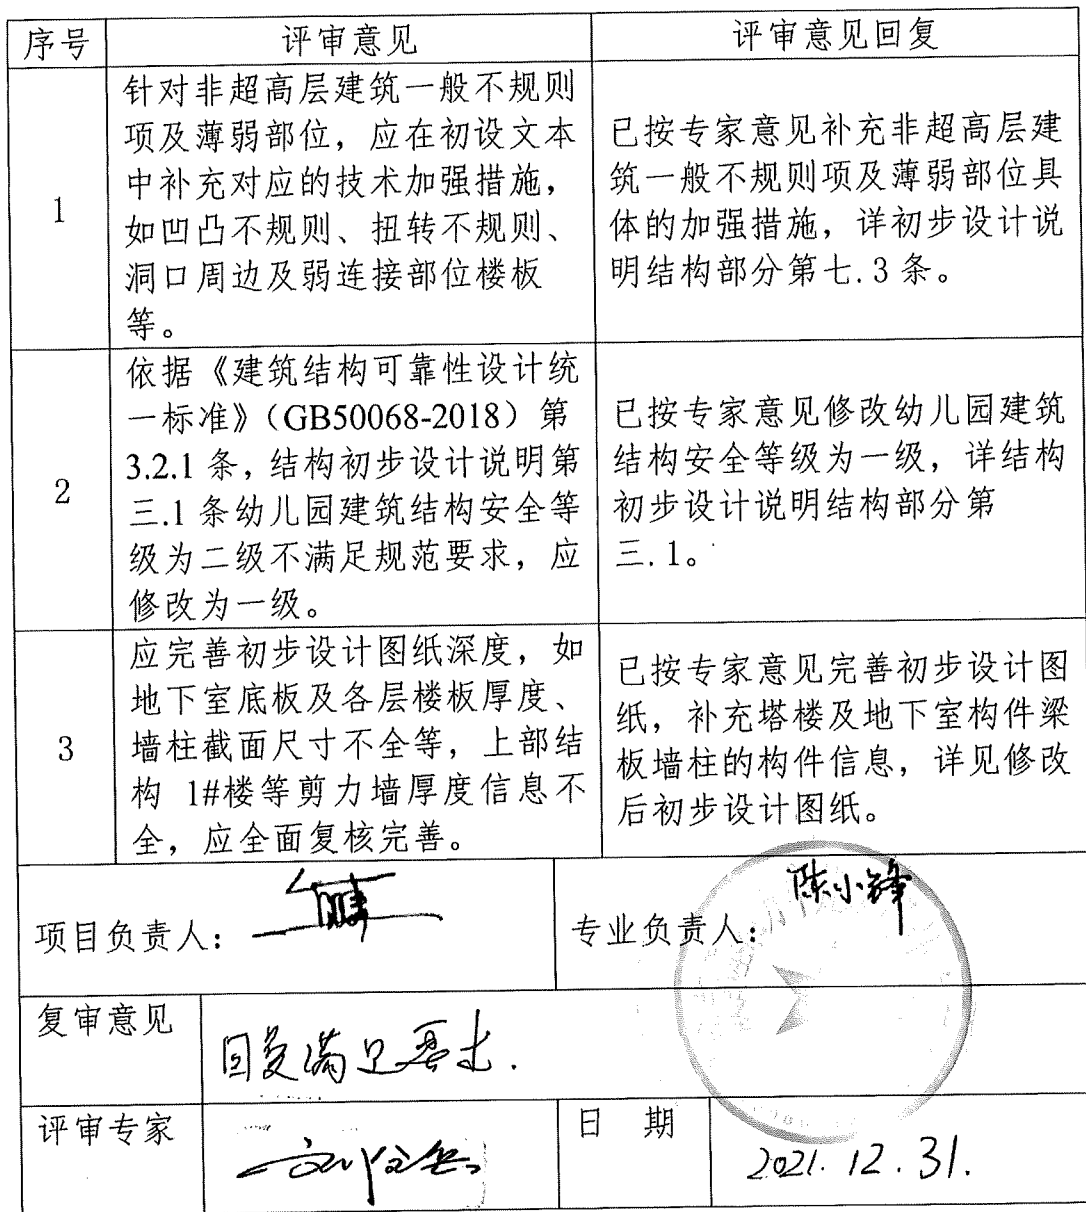 序号 评审意见 评审意见回复
1
针对非超高层建筑一般不规则
项及薄弱部位，应在初设文本
中补充对应的技术加强措施，
如凹凸不规则、扭转不规则、
洞口周边及弱连接部位楼板
等。
已按专家意见补充非超高层建
筑一般不规则项及薄弱部位具
体的加强措施，详初步设计说
明结构部分第七.3条。
2
依据《建筑结构可靠性设计统
一标准》（GB50068-2018）第
3.2.1条，结构初步设计说明第
三.1条幼儿园建筑结构安全等
级为二级不满足规范要求，应
修改为一级。
已按专家意见修改幼儿园建筑
结构安全等级为一级，详结构
初步设计说明结构部分第
三.1。
3
应完善初步设计图纸深度，如
地下室底板及各层楼板厚度、
墙柱截面尺寸不全等，上部结
构 1#楼等剪力墙厚度信息不
全，应全面复核完善。
已按专家意见完善初步设计图
纸，补充塔楼及地下室构件梁
板墙柱的构件信息，详见修改
后初步设计图纸。
项目负责人：
专业负责人：陈小锋
复审意见
回复满足要求.
评审专家
日 期
2021.12.31.